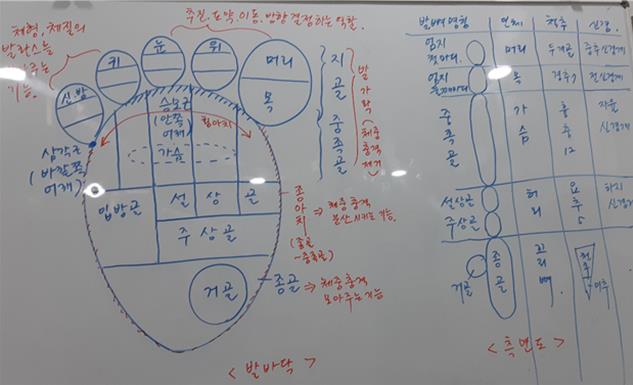 추진, 도약, 이동, 방향 결정하는 역할.
체형, 체질의
발란스를
기능.
신방
귀
눈
뒤
머리
목
지골
중족골
발가락
체중
충격
제거
삼각근
(바깥쪽
어깨)
승모근
(안쪽
어깨)
횡아치
가슴
입방골
설상골
주상골
거골
종아치
⇒ 체중 충격
분산시키는 기능.
(종골
~중족골)
종골 ⇒ 체중 충격
모아주는 기능
< 발바닥 >
발뼈명칭
인체
척추
신경.
엄지
머리
두개골
중추신경계
엄지
목
경추7
중족골
가슴
흉추
12
자율
신경계
설상골
주상골
허리
요추
5
하지
신경계
거골
종골
꼬리뼈
천추
미추
< 측면도 >